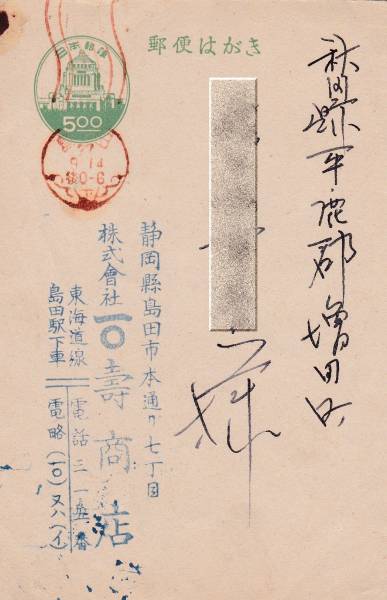 郵便はがき
日本郵便
5.00
9.14
秋田縣平鹿郡増田町
様
静岡縣島田市本通り七丁目
株式會社 一〇壽商店
東海道線
島田駅下車
電話三一五番
電略(一〇)又ハ(イ)